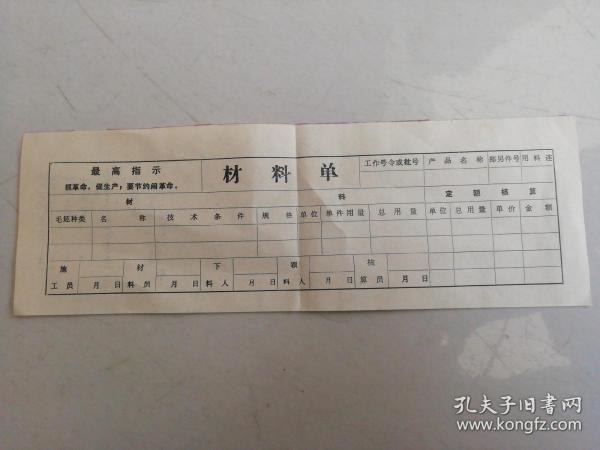 最高指示
抓革命，促生产；要节约闹革命。
材料单
工作号令或批号 产品名称 部另件号 用料迖
材料 定额核算
毛坯种类 名称 技术条件 规格 单位 单件用量 总用量 单位 总用量 单价 金额
施工员 月日 材料员 月日 下料人 月日 领料人 月日 核算员 月日
孔夫子旧书网
www.kongfz.com